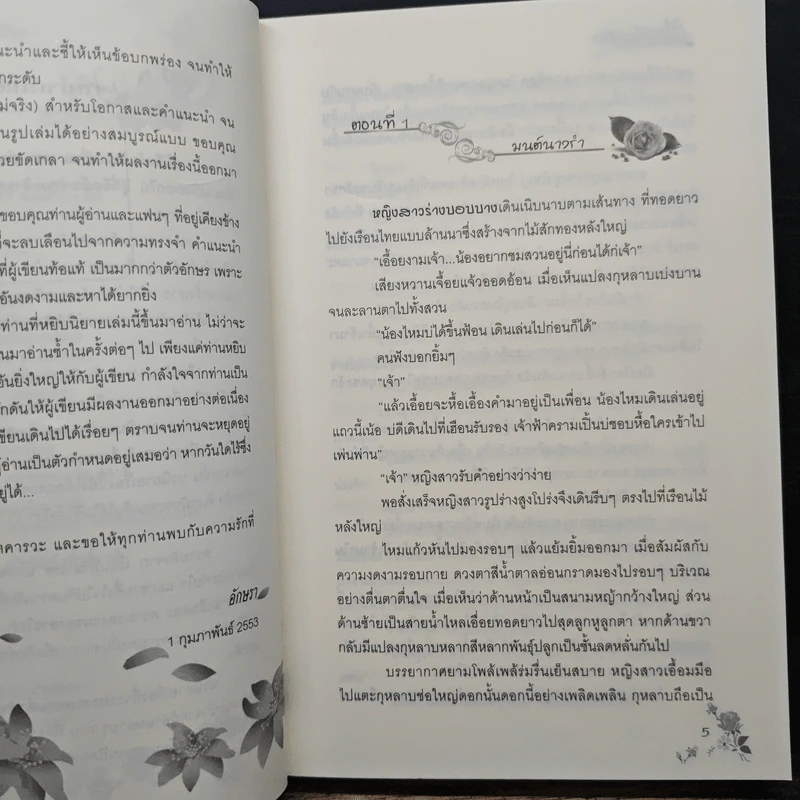 นะนำและชี้ให้เห็นข้อบกพร่อง จนทำให้
กระดับ
ม่จริง) สำหรับโอกาสและคำแนะนำ จน
นรูปเล่มได้อย่างสมบูรณ์แบบ ขอบคุณ
วยขัดเกลา จนทำให้ผลงานเรื่องนี้ออกมา
ขอบคุณท่านผู้อ่านและแฟนๆ ที่อยู่เคียงข้าง
ที่จะลบเลือนไปจากความทรงจำ คำแนะนำ
ที่ผู้เขียนท้อแท้ เป็นมากกว่าตัวอักษร เพราะ
อันงดงามและหาได้ยากยิ่ง
ท่านที่หยิบนิยายเล่มนี้ขึ้นมาอ่าน ไม่ว่าจะ
นมาอ่านซ้ำในครั้งต่อๆ ไป เพียงแค่ท่านหยิบ
อันยิ่งใหญ่ให้กับผู้เขียน กำลังใจจากท่านเป็น
ักดันให้ผู้เขียนมีผลงานออกมาอย่างต่อเนื่อง
เขียนเดินไปได้เรื่อยๆ ตราบจนท่านจะหยุดอยู่
ผู้อ่านเป็นตัวกำหนดอยู่เสมอว่า หากวันใดไร้ซึ่ง
ยู่ได้...
คารวะ และขอให้ทุกท่านพบกับความรักที่
อักษรา
1 กุมภาพันธ์ 2553
ตอนที่ 1
มนต์นางรำ
หญิงสาวร่างบอบบางเดินเนิบนาบตามเส้นทาง ที่ทอดยาว
ไปยังเรือนไทยแบบล้านนาซึ่งสร้างจากไม้สักทองหลังใหญ่
“เอื้อยงามเจ้า...น้องอยากชมสวนอยู่นี่ก่อนได้ก่เจ้า”
เสียงหวานเจื้อยแจ้วออดอ้อน เมื่อเห็นแปลงกุหลาบเบ่งบาน
จนละลานตาไปทั้งสวน
“น้องไหมบ่ได้ขึ้นฟ้อน เดินเล่นไปก่อนก็ได้”
คนฟังบอกยิ้มๆ
“เจ้า”
“แล้วเอื้อยจะหื้อเอื้องคำมาอยู่เป็นเพื่อน น้องไหมเดินเล่นอยู่
แถวนี้เน้อ บ่ดีเดินไปที่เฮือนรับรอง เจ้าฟ้าครามเปิ้นบ่ชอบหื้อใครเข้าไป
เพ่นพ่าน”
“เจ้า” หญิงสาวรับคำอย่างว่าง่าย
พอสั่งเสร็จหญิงสาวรูปร่างสูงโปร่งจึงเดินรีบๆ ตรงไปที่เรือนไม้
หลังใหญ่
ไหมแก้วหันไปมองรอบๆ แล้วแย้มยิ้มออกมา เมื่อสัมผัสกับ
ความงดงามรอบกาย ดวงตาสีน้ำตาลอ่อนกราดมองไปรอบๆ บริเวณ
อย่างตื่นตาตื่นใจ เมื่อเห็นว่าด้านหน้าเป็นสนามหญ้ากว้างใหญ่ ส่วน
ด้านซ้ายเป็นสายน้ำไหลเอื่อยทอดยาวไปสุดลูกหูลูกตา หากด้านขวา
กลับมีแปลงกุหลาบหลากสีหลากพันธุ์ปลูกเป็นชั้นลดหลั่นกันไป
บรรยากาศยามโพล้เพล้ร่มรื่นเย็นสบาย หญิงสาวเอื้อมมือ
ไปแตะกุหลาบช่อใหญ่ดอกนั้นดอกนี้อย่างเพลิดเพลิน กุหลาบถือเป็น
5